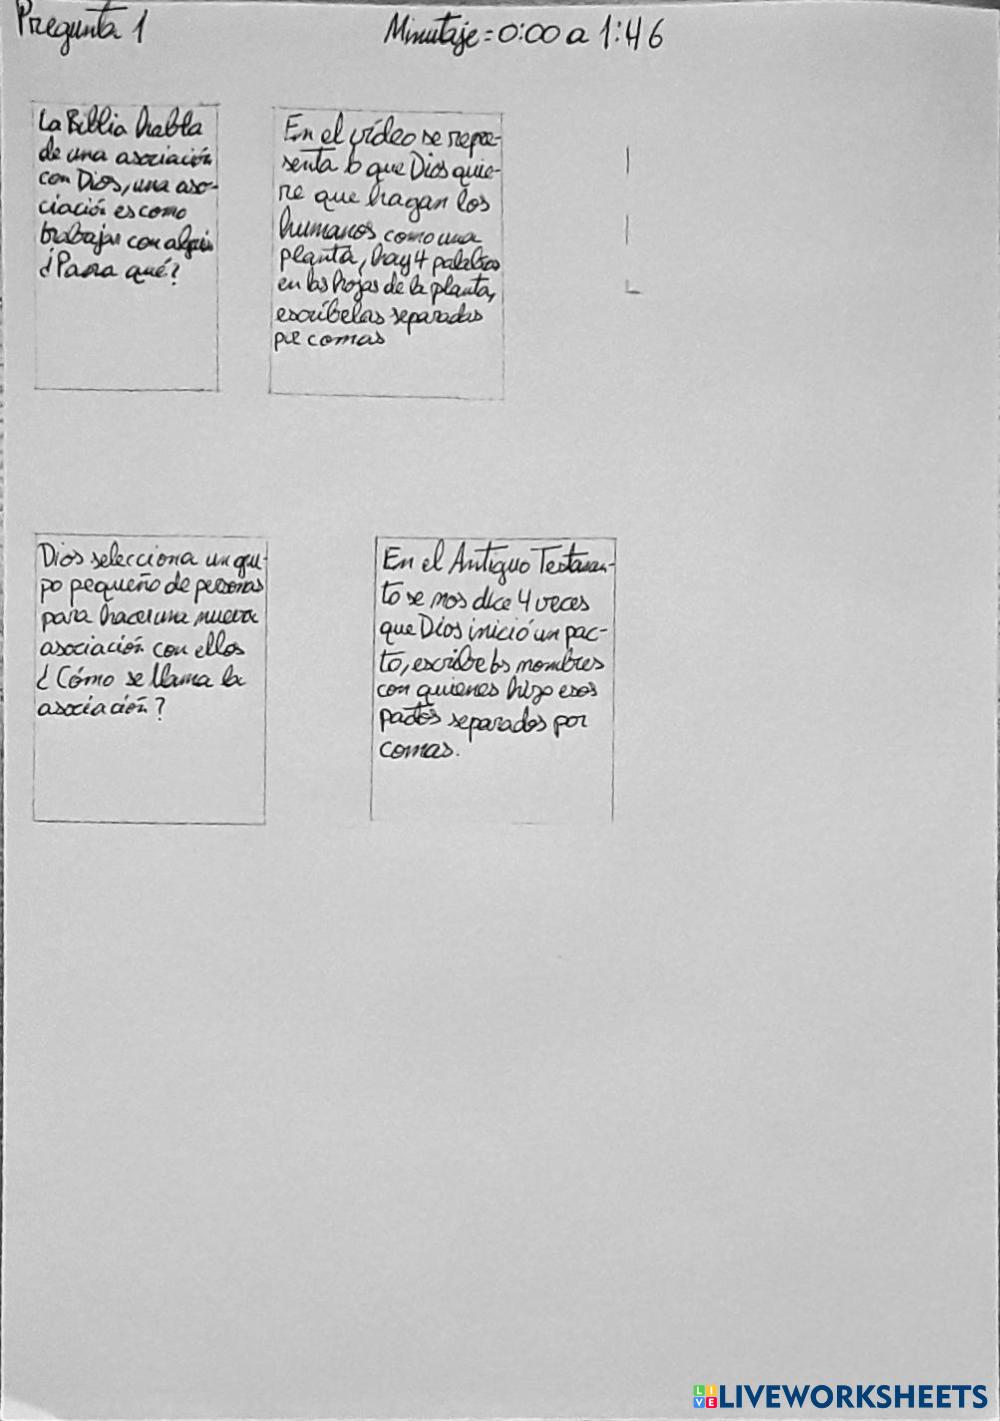 Pregunta 1
Minutaje = 0:00 a 1:46
La Biblia habla
de una asociación
con Dios, una aso-
ciación es como
trabajar con alguien
¿Para qué?
En el vídeo se repre-
senta lo que Dios quie-
re que hagan los
humanos como una
planta, hay 4 palabras
en las hojas de la planta,
escríbelas separadas
por comas
Dios selecciona un gru-
po pequeño de personas
para hacer una nueva
asociación con ellos
¿Cómo se llama la
asociación?
En el Antiguo Testamen-
to se nos dice 4 veces
que Dios inició un pac-
to, escribe los nombres
con quienes hizo esos
pactos separados por
comas.
LIVEWORKSHEETS